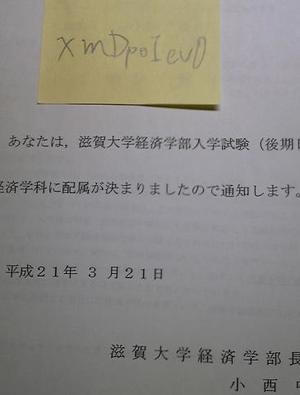 xmDpoIev0
あなたは，滋賀大学経済学部入学試験（後期
経済学科に配属が決まりましたので通知します。
平成２１年 ３ 月２１日
滋賀大学経済学部長
小 西